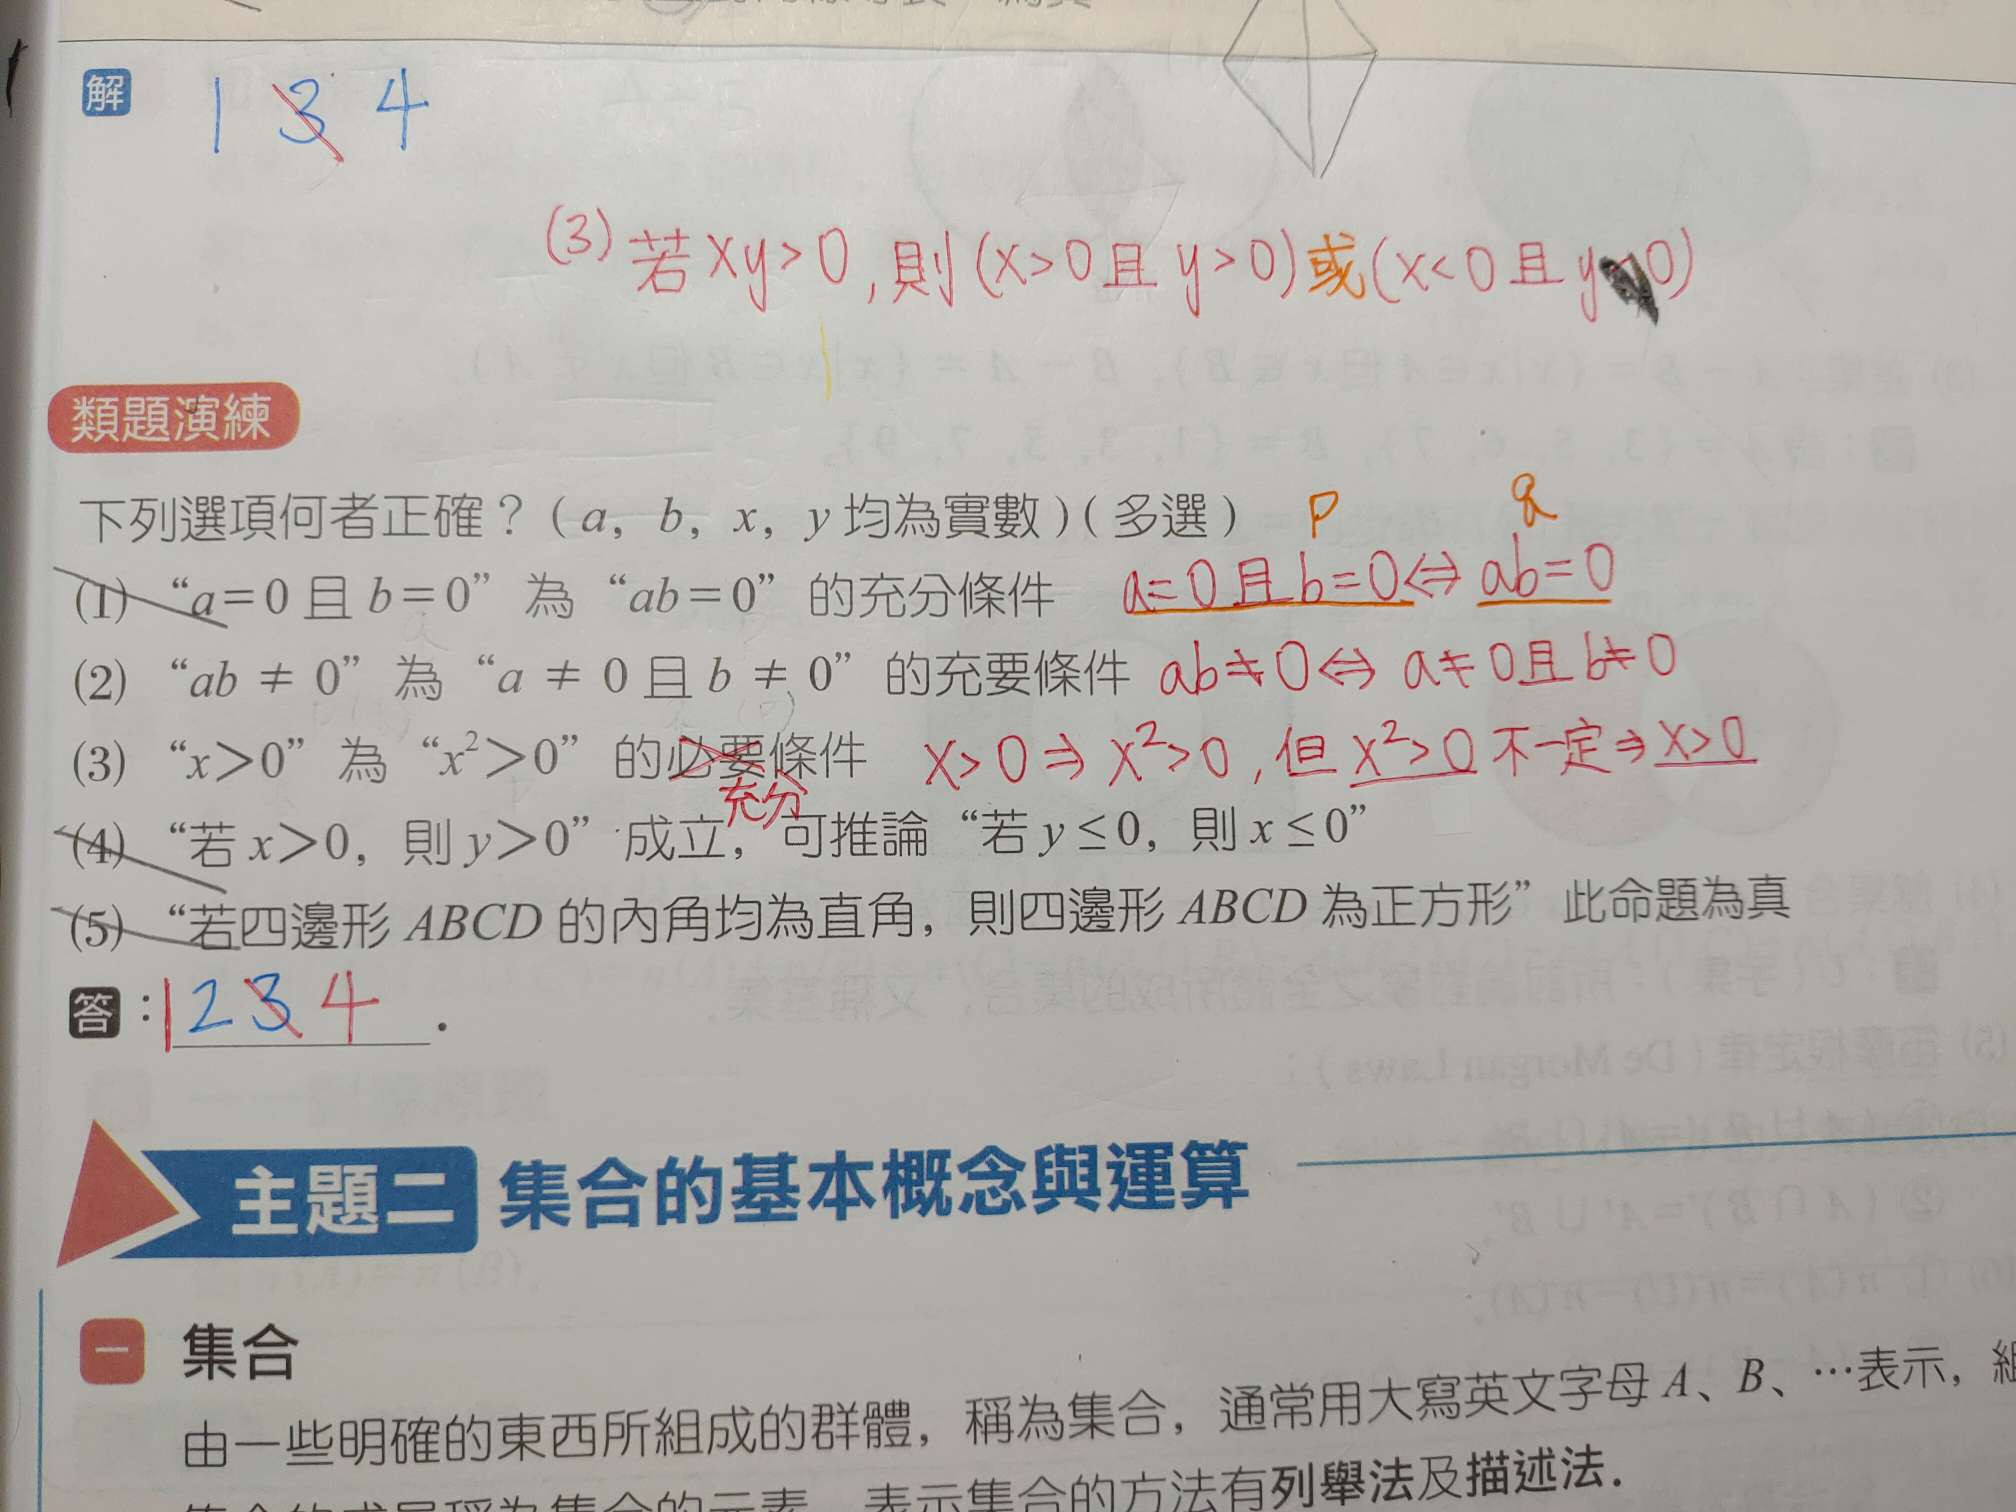 解 1 3 4
(3) 若 xy>0, 則 (x>0 且 y>0) 或 (x<0 且 y 0)
類題演練
下列選項何者正確？(a, b, x, y 均為實數)(多選) P q
(1) “a=0 且 b=0” 為 “ab=0” 的充分條件 a=0 且 b=0 ⇔ ab=0
(2) “ab ≠ 0” 為 “a ≠ 0 且 b ≠ 0” 的充要條件 ab≠0 ⇔ a≠0 且 b≠0
(3) “x>0” 為 “x²>0” 的必要條件 x>0 ⇒ x²>0, 但 x²>0 不一定 ⇒ x>0
充分
(4) “若 x>0, 則 y>0” 成立, 可推論 “若 y≤0, 則 x≤0”
(5) “若四邊形 ABCD 的內角均為直角, 則四邊形 ABCD 為正方形” 此命題為真
答：1 2 3 4 .
主題二 集合的基本概念與運算
一 集合
由一些明確的東西所組成的群體, 稱為集合, 通常用大寫英文字母 A、B、…表示,
表示集合的方法有列舉法及描述法.